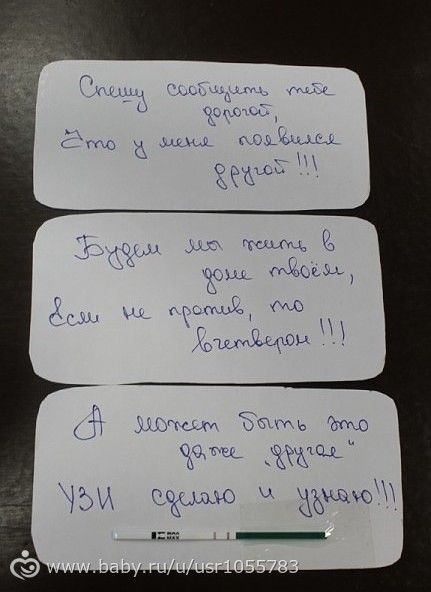 Спешу сообщить тебе
дорогой,
Что у меня появился
другой!!!
Будем мы жить в
доме твоём,
Если не против, то
вчетвером!!!
А может быть это
даже „другая“
УЗИ сделаю и узнаю!!!
www.baby.ru/u/usr1055783